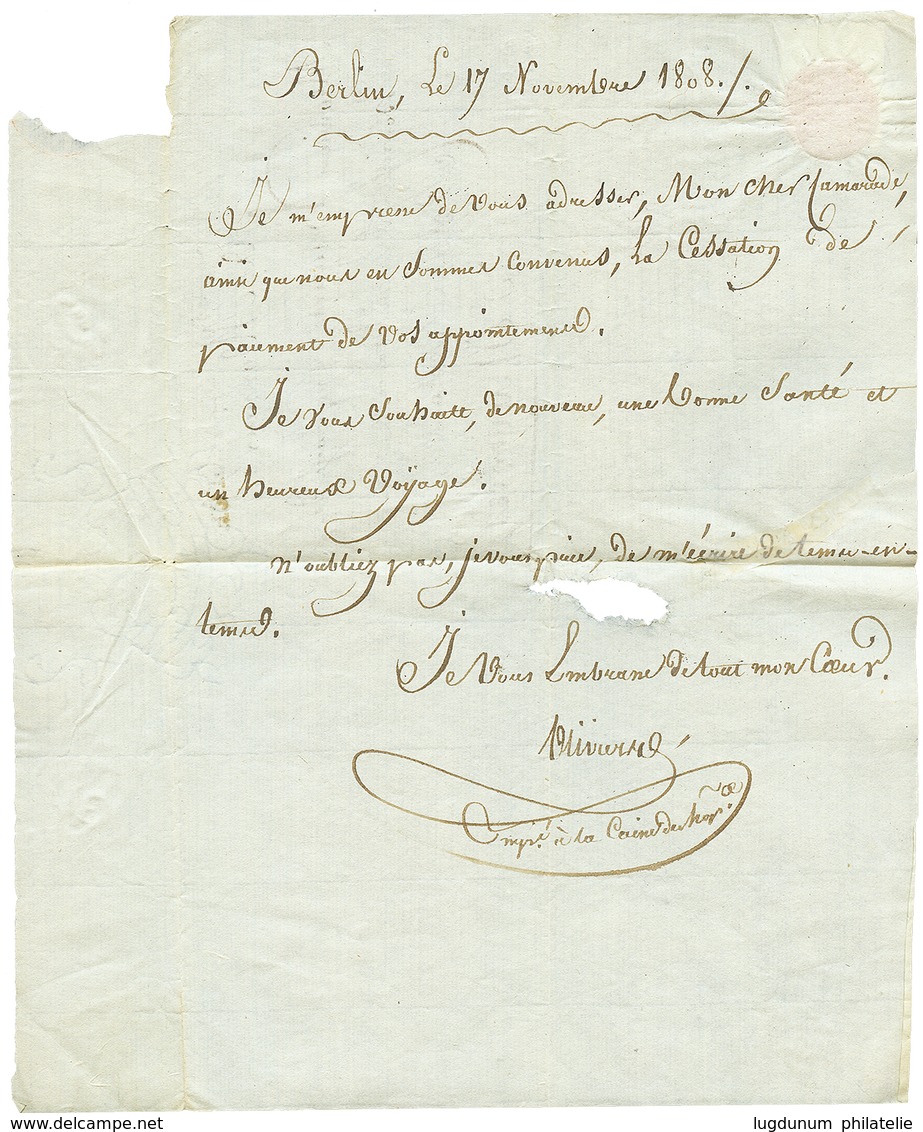 Berlin, Le 17 Novembre 1808./.
Je m'empresse de vous adresser, Mon cher Camarade,
ainsi que nous en sommes convenus, La Cessation de
paiement de vos appointements.
Je vous souhaite, de nouveau, une bonne santé et
un heureux Voÿage.
n'oubliez pas, je vous prie, de m'écrire de tems-en-
tems.
Je Vous Embrasse de tout mon Cœur.
Empé. à la Caisse des hôpx.
lugdunum philatelie